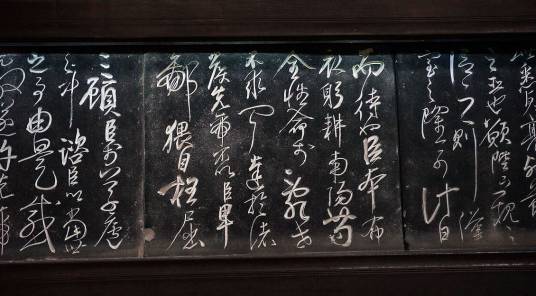 悉貞亮死節
之臣也願陛下親之
信之則漢
室之隆可計日
而待也臣本布
衣躬耕南陽苟
全性命於亂世
不求聞達於諸
侯先帝不以臣卑
鄙猥自枉屈
三顧臣於草廬
之中諮臣以當世
之事由是感
激遂許先帝